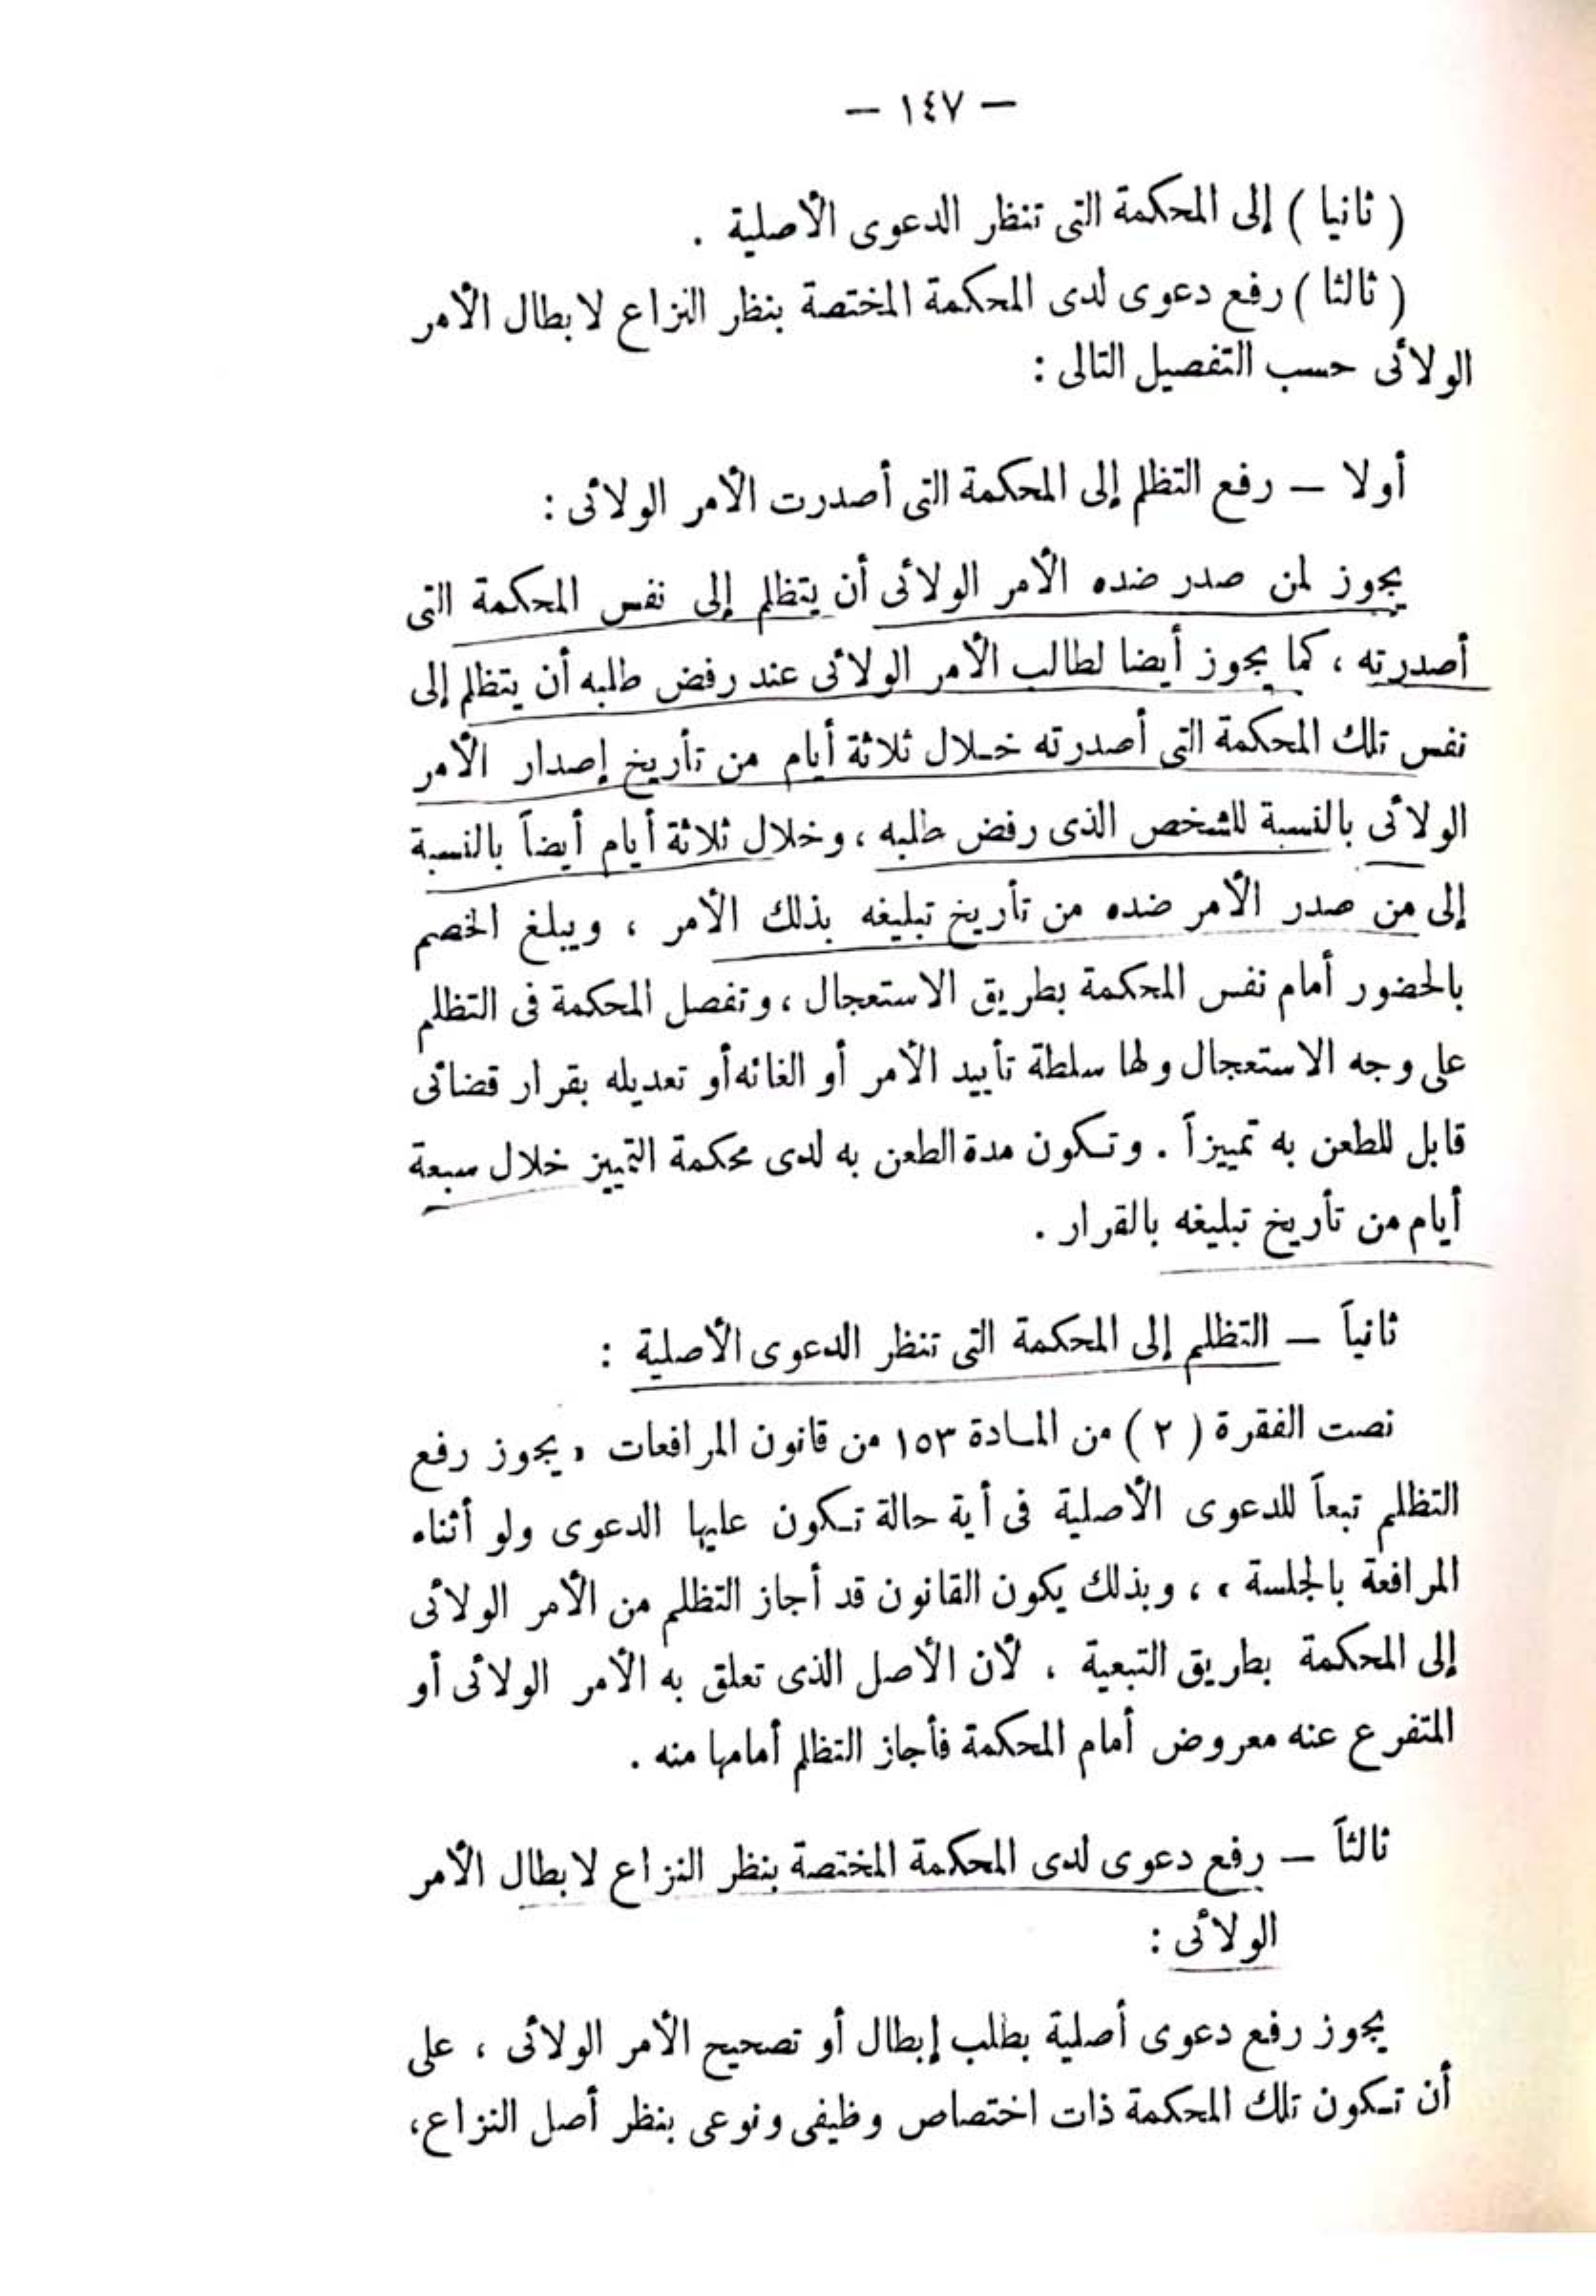 — ١٤٧ —
( ثانيا ) إلى المحكمة التى تنظر الدعوى الأصلية .
( ثالثا ) رفع دعوى لدى المحكمة المختصة بنظر النزاع لابطال الأمر
الولائى حسب التفصيل التالى :
أولا — رفع التظلم إلى المحكمة التى أصدرت الأمر الولائى :
يجوز لمن صدر ضده الأمر الولائى أن يتظلم إلى نفس المحكمة التى
أصدرته ، كما يجوز أيضا لطالب الأمر الولائى عند رفض طلبه أن يتظلم إلى
نفس تلك المحكمة التى أصدرته خلال ثلاثة أيام من تأريخ إصدار الأمر
الولائى بالنسبة للشخص الذى رفض طلبه ، وخلال ثلاثة أيام أيضاً بالنسبة
إلى من صدر الأمر ضده من تأريخ تبليغه بذلك الأمر ، ويبلغ الخصم
بالحضور أمام نفس المحكمة بطريق الاستعجال ، وتفصل المحكمة فى التظلم
على وجه الاستعجال ولها سلطة تأييد الأمر أو الغائه أو تعديله بقرار قضائى
قابل للطعن به تمييزاً . وتكون مدة الطعن به لدى محكمة التمييز خلال سبعة
أيام من تأريخ تبليغه بالقرار .
ثانياً — التظلم إلى المحكمة التى تنظر الدعوى الأصلية :
نصت الفقرة ( ٢ ) من المادة ١٥٣ من قانون المرافعات « يجوز رفع
التظلم تبعاً للدعوى الأصلية فى أية حالة تكون عليها الدعوى ولو أثناء
المرافعة بالجلسة » ، وبذلك يكون القانون قد أجاز التظلم من الأمر الولائى
إلى المحكمة بطريق التبعية ، لأن الأصل الذى تعلق به الأمر الولائى أو
المتفرع عنه معروض أمام المحكمة فأجاز التظلم أمامها منه .
ثالثاً — رفع دعوى لدى المحكمة المختصة بنظر النزاع لابطال الأمر
الولائى :
يجوز رفع دعوى أصلية بطلب إبطال أو تصحيح الأمر الولائى ، على
أن تكون تلك المحكمة ذات اختصاص وظيفى ونوعى بنظر أصل النزاع،